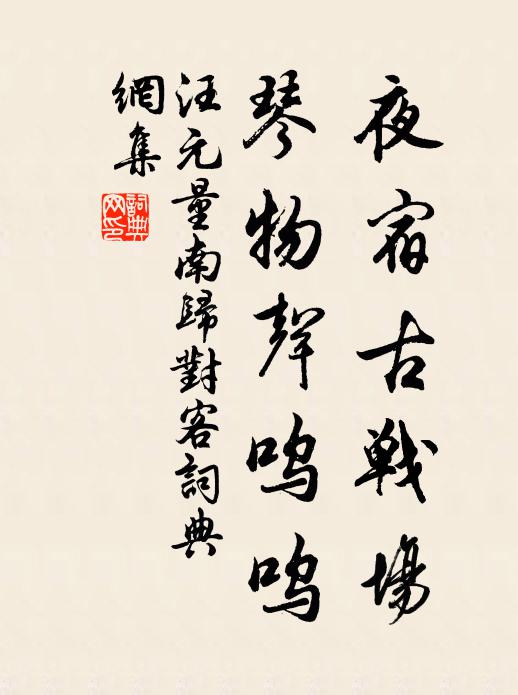 夜宿古戰場
琴物聲呜呜
汪元量南歸對客詞典
網集
詞典
网印